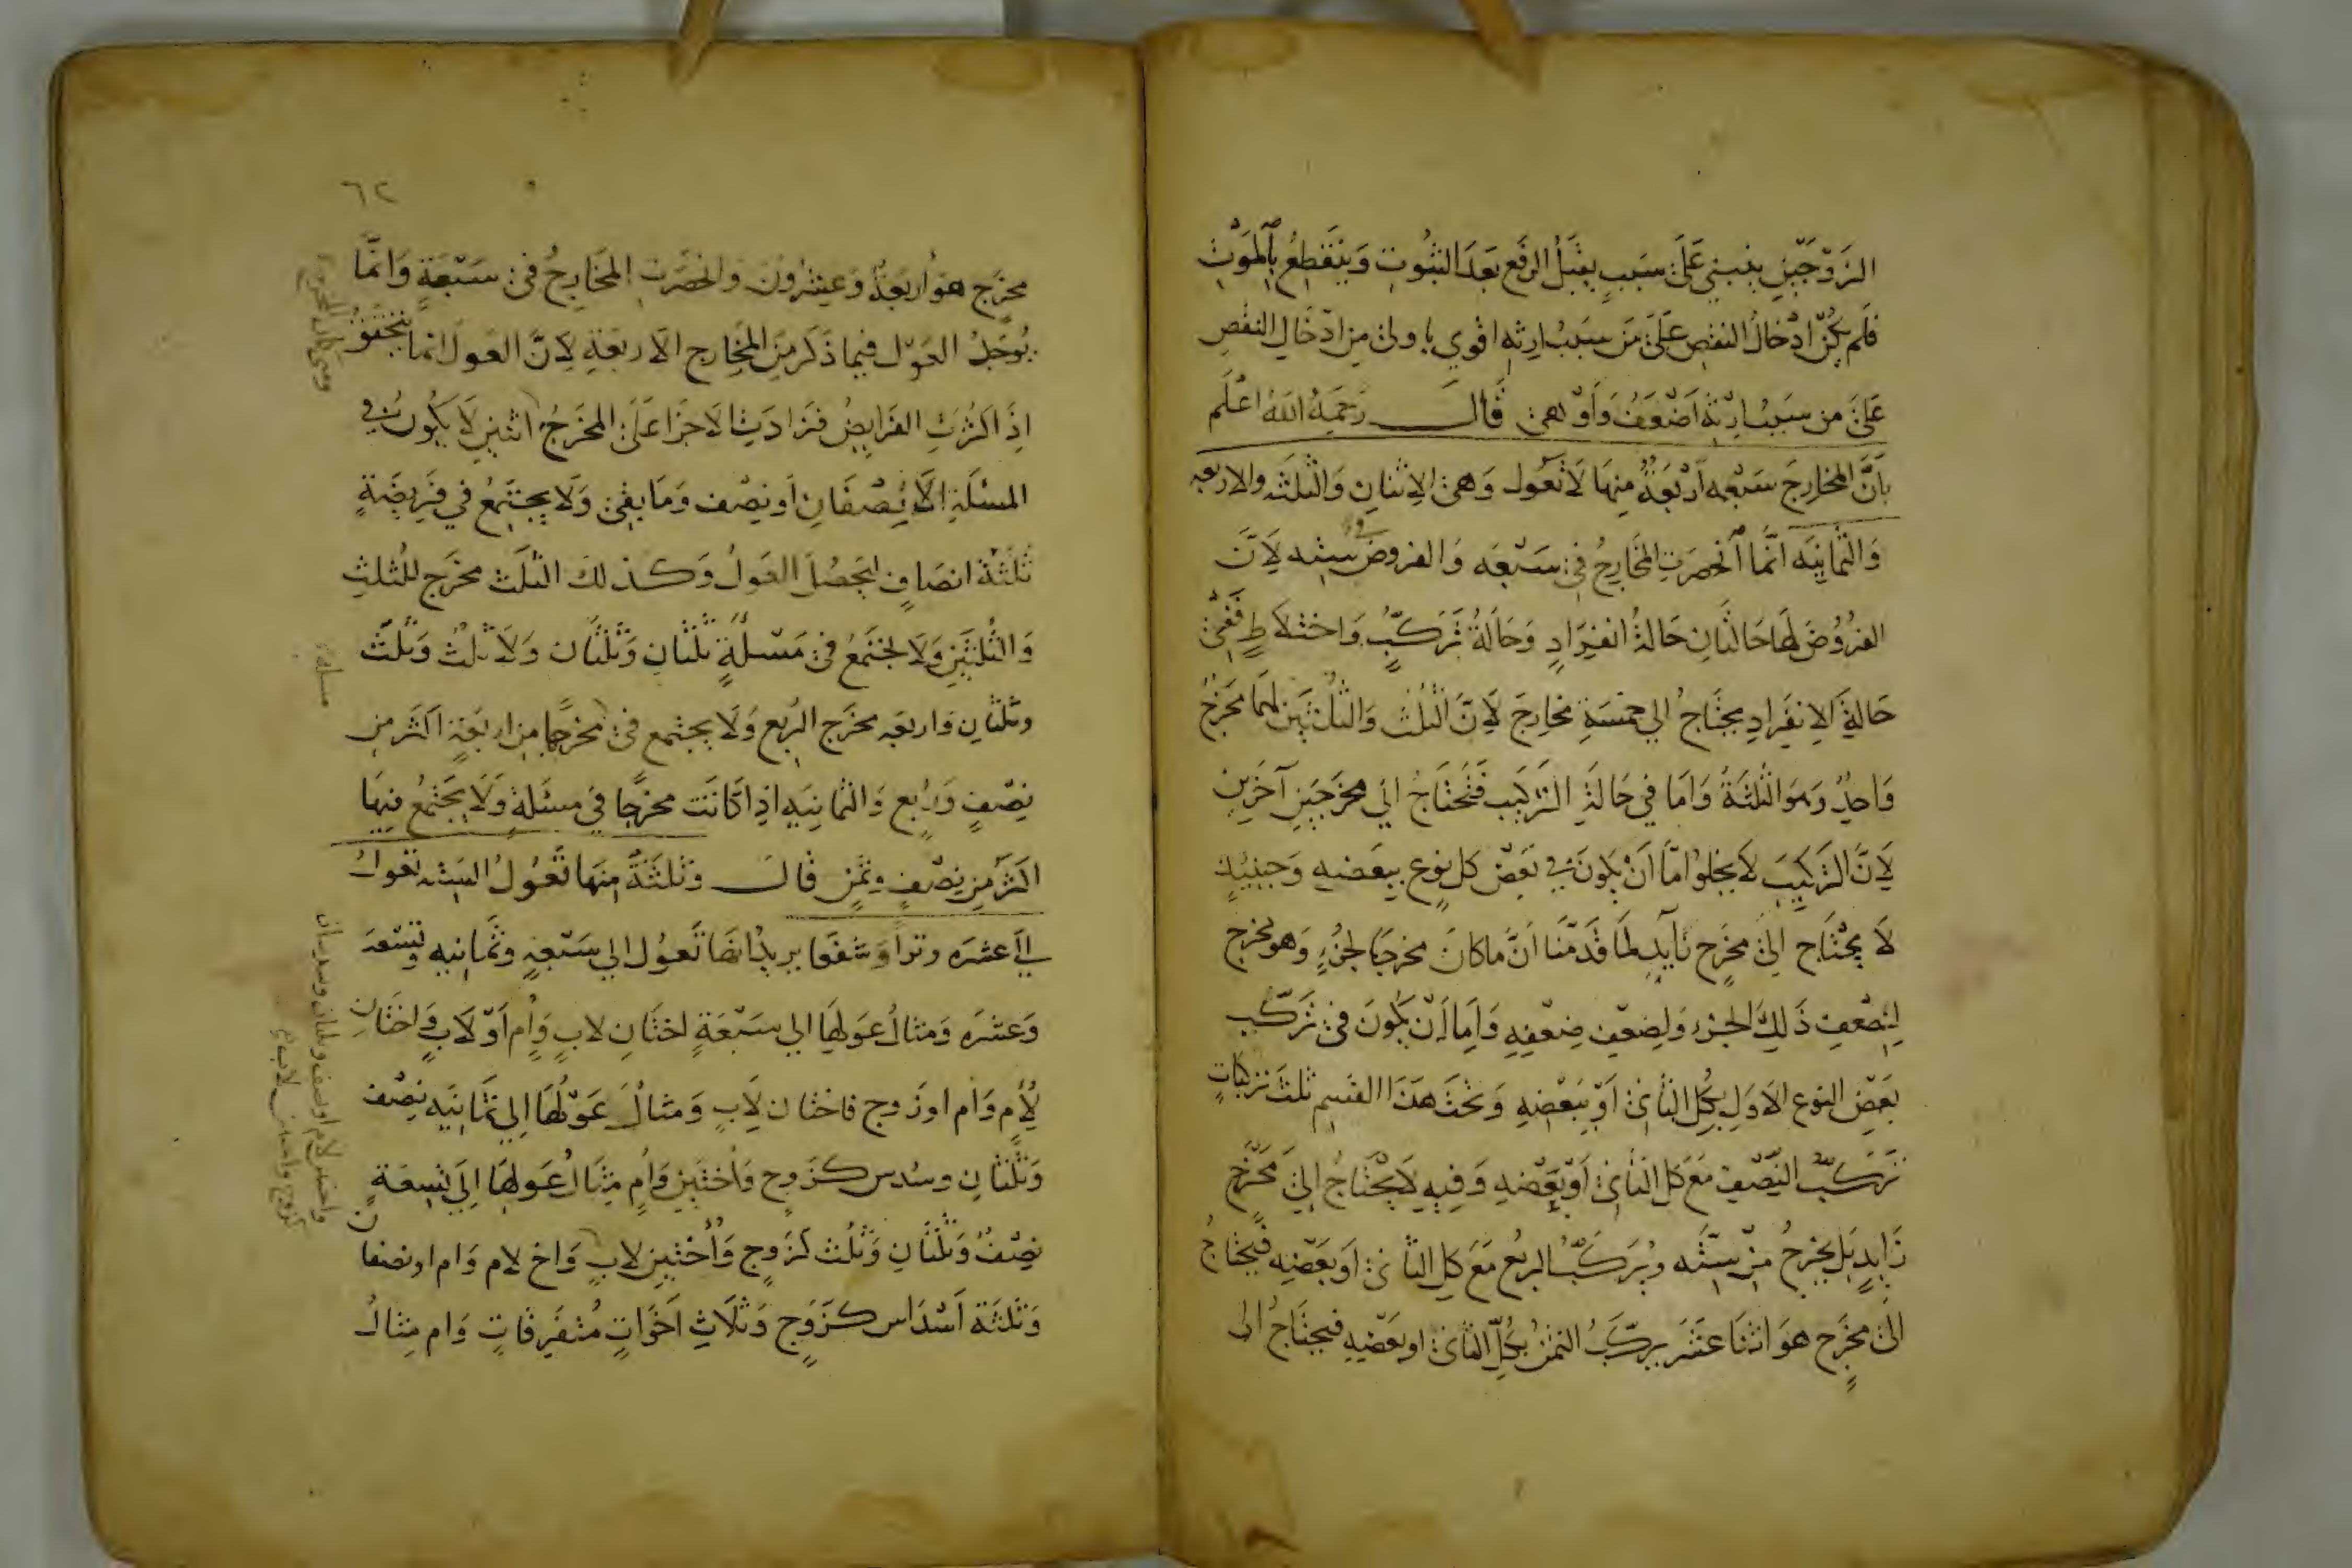 الزوجين ينبني على سبب يقبل الرفع بعد الثبوت وينقطع بالموت
فلم يكن ادخال النقص على من سبب ارثه اقوي باولى من ادخال النقص
على من سبب ارثه اضعف واوهى قال رحمه الله اعلم
بأن المخارج سبعه أربعة منها لا تعول وهي الاثنان والثلثه والاربعه
والثمانيه انما انحصرت المخارج في سبعه والفروض سته لان
الفروض لها حالتان حالة انفراد وحالة تركب واختلاط ففي
حالة الانفراد يحتاج الي خمسة مخارج لان الثلث والثلثين لهما مخرج
واحد وهو الثلثة واما في حالة التركيب فنحتاج الي مخرجين آخرين
لان التركيب لا يخلوا اما أن يكون في بعض كل نوع ببعضه وحينئذ
لا يحتاج الى مخرج زايد لما قدمنا أن ما كان مخرجا لجزء وهو مخرج
لضعف ذلك الجزء ولضعف ضعفه واما أن يكون في تركب
بعض النوع الاول بكل الثاني أو ببعضه وتحت هذا القسم ثلث تركبات
تركب النصف مع كل الثاني أو بعضه وفيه لا يحتاج الى مخرج
زايد بل يخرج من سته وتركب الربع مع كل الثاني أو بعضه فيحتاج
الى مخرج هو اثنا عشر بركب الثمن بكل الثاني او بعضه فيحتاج الى
٦٢
مخرج هو أربعة وعشرون وانحصرت المخارج في سبعة وانما
يوجد العول فيما ذكر من المخارج الاربعة لان العول انما يتحقق
اذا كثرت الفرايض فزادت الاجزا على المخرج اثنين لا يكون في
المسئلة الا نصفان أو نصف وما بقي ولا يجتمع في فريضة
ثلثة انصاف ليحصل العول وكذلك الثلث مخرج للثلث
والثلثين ولا يجتمع في مسئلة ثلثان وثلثان ولا ثلث وثلث
وثلثان واربعه مخرج الربع ولا يجتمع في مخرجها من اربعة اكثر من
نصف وربع والثمانيه اذا كانت مخرجا في مسئلة ولا يجتمع فيها
اكثر من نصف وثمن قال وثلثة منها تعول السته تعول
الي عشره وترا وشفعا يريد انها تعول الي سبعة وثمانيه وتسعة
وعشره ومثال عولها الي سبعة اختان لاب وأم أو لاب واختان
لأم وام اوزوج واختان لاب ومثال عولها الي ثمانيه نصف
وثلثان وسدس كزوج واختين وام مثال عولها الي تسعة
نصف وثلثان وثلث كزوج وأختين لاب واخ لام وام او نصفان
وثلثة اسداس كزوج وثلاث اخوات متفرقات وام مثال